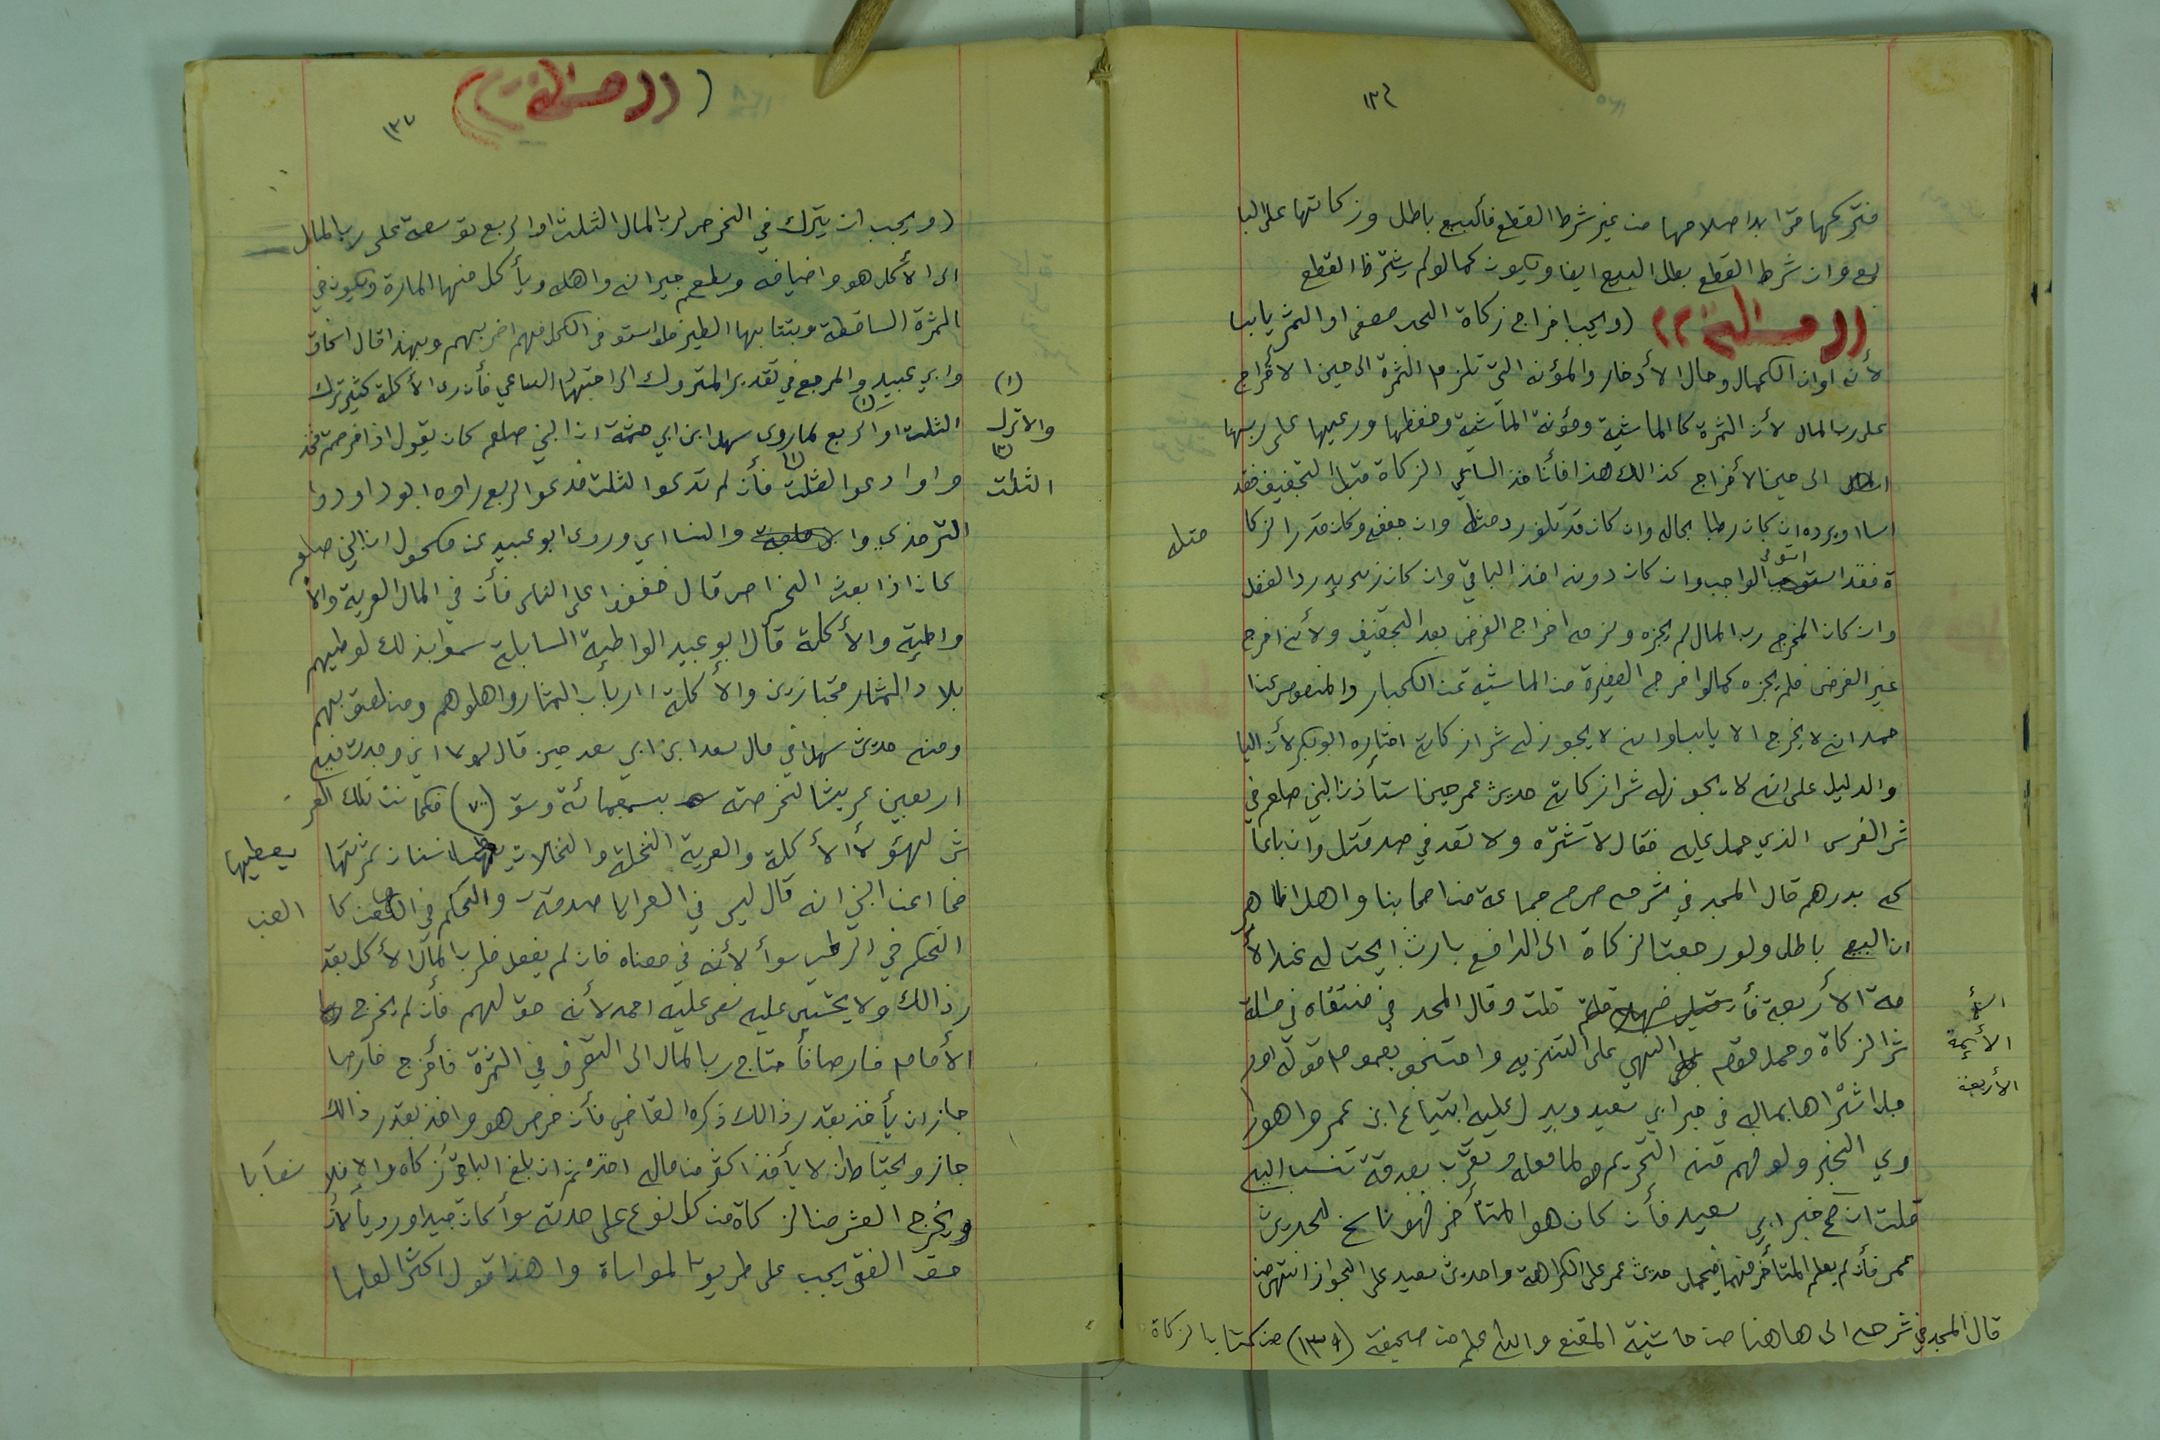 ١٣٦
فتركها حتى بدا صلاحها من غير شرط القطع فألبيع باطل وزكاتها على البا
يع وان شرط القطع بطل البيع ايضا ويكون كما لو لم يشترط القطع
((مسألة)) (ويجب اخراج زكاة الحب مصفى او الثمر يابسا
لأنه اوان الكمال وحال الأدخار والمؤنه التي تلزم الثمرة الى حين الاخراج
على رب المال لأن الثمرة كا الماشية ومؤنة الماشية وحفظها ورعيها على ربها
الى حين الأخراج كذالك هذا فأن اخذ الساعي الزكاة قبل التجفيف فقد
اسا ويرده ان كان رطبا بحاله وان كان قد تلف رد مثله وان جففه وكان قدر الزكا
مثله
ة فقد استوفى الواجب وان كان دونه اخذ الباقي وان كان زايد رد الفضل
وان كان المخرج رب المال لم يجزه ولزمه اخراج الفرض بعد التجفيف ولأنه اخرج
غير الفرض فلم يجزه كما لو اخرج الصغيرة من الماشية عن الكبار والمنصوص عن ا
حمد انه لا يخرج الا يابسا وانه لا يجوز له شرا زكاته اختاره ابو بكر لأن البا
والدليل على انه لا يجوز له شرا زكاته حديث عمر حين استأذن النبي صلعم في
شرا الفرس الذي حمل عليه فقال لا تشتره ولا تعد في صدقتك وان باعا
كه بدرهم قال المجد في شرحه صرح جماعة من اصحابنا واهل الظاهر
ان البيع باطل ولو رجعت الزكاة الى الدافع بارث ابحت له عند الأ
مة الأربعة قلت وقال المجد في منتقاه في مسألة
الأئمة
الأربعة
شرا الزكاة وحمل قوم النهي على التنزيه واحتجو بعموم قوله او ر
جل اشتراها بماله في خبر ابي سعيد ويدل عليه ابتياع ابن عمر وهو را
وي الخبر ولو فهم منه التحريم لما فعله وتقرب بصدقة تنسب اليه
قلت ان صح خبر ابي سعيد فأن كان هو المتأخر فهو ناسخ لحديث
عمر فأن لم يعلم المتأخر منهما فيحمل حديث عمر على الكراهة وحديث سعيد على الجواز انتهى من
قال المجد في شرحه الى هاهنا من حاشية المقنع والله اعلم من صحيفة (١٣٩) من كتاب الزكاة
((مسألة))
١٣٧
(ويجب ان يترك في الخرص لرب المال الثلث او الربع توسعة على رب المال
الى الأكل هو واضيافه ويطعم جيرانه واهله ويأكل منها المارة ويكون في
الثمرة الساقطة وينتابها الطير فلو استوفى الكل منهم اضر بهم وبهذا قال اسحاق
وابي عبيد والمرجع في تقدير المتروك الى اجتهاد الساعي فأن رى الأكلة كثير ترك
الثلث او الربع لما روى سهل ابن ابي حثمة ان النبي صلعم كان يقول اذا خرصتم فخذ
(١)
والاترك
و او ا دعوا الثلث فأن لم تدعوا الثلث فدعوا الربع راوه ابو داود وا
(٢)
الثلث
الترمذي والنساىي وروى ابو عبيد عن مكحول ان النبي صلعم
كان اذا بعث الخراص قال خففوا على الناس فأن في المال العرية والا
واطية والأكلة قال ابو عبيد الواطية السابلة سموا بذلك لوطيهم
بلاد الثمار مجتازين والأكلة ارباب الثمار واهلوهم ومن لصق بهم
ومنه حديث سهل في مال سعد ابن ابي سعد حين قال لولا اني وجدت فيه
اربعين عريشا لخرصته بسبعمائة وسق (٧٠٠) فكانت تلك العر
ش لهؤلأ الأكلة والعرية النخلة والنخلات انسان ثمرتها
يعطيها
فجا عن النبي انه قال ليس في العرايا صدقة والحكم في العنب كا
العنب
الحكم في الرطب سوأ لأنه في معناه فان لم يفعل فلرب المال الأكل بقد
ر ذالك ولا يحتسب عليه نص عليه احمد لأنه حق لهم فأن لم يخرج
الأمام خارصا فأحتاج رب المال الى التصرف في الثمرة فأخرج خارصا
جاز ان يأخذ بقدر ذالك ذكره القاضي فأن خرص هو واخذ بقدر ذالك
جاز ويحتاط ان لا يأخذ اكثر من ماله اخذه ثم ان بلغ الباقي زكاه والا فلا
نصابا
ويخرج العشر من الزكاة من كل نوع على حدته سوأ كان جيدا و رديأ لأن
حق الفقر يجب على طريق المواساة وهذا قول اكثر العلما